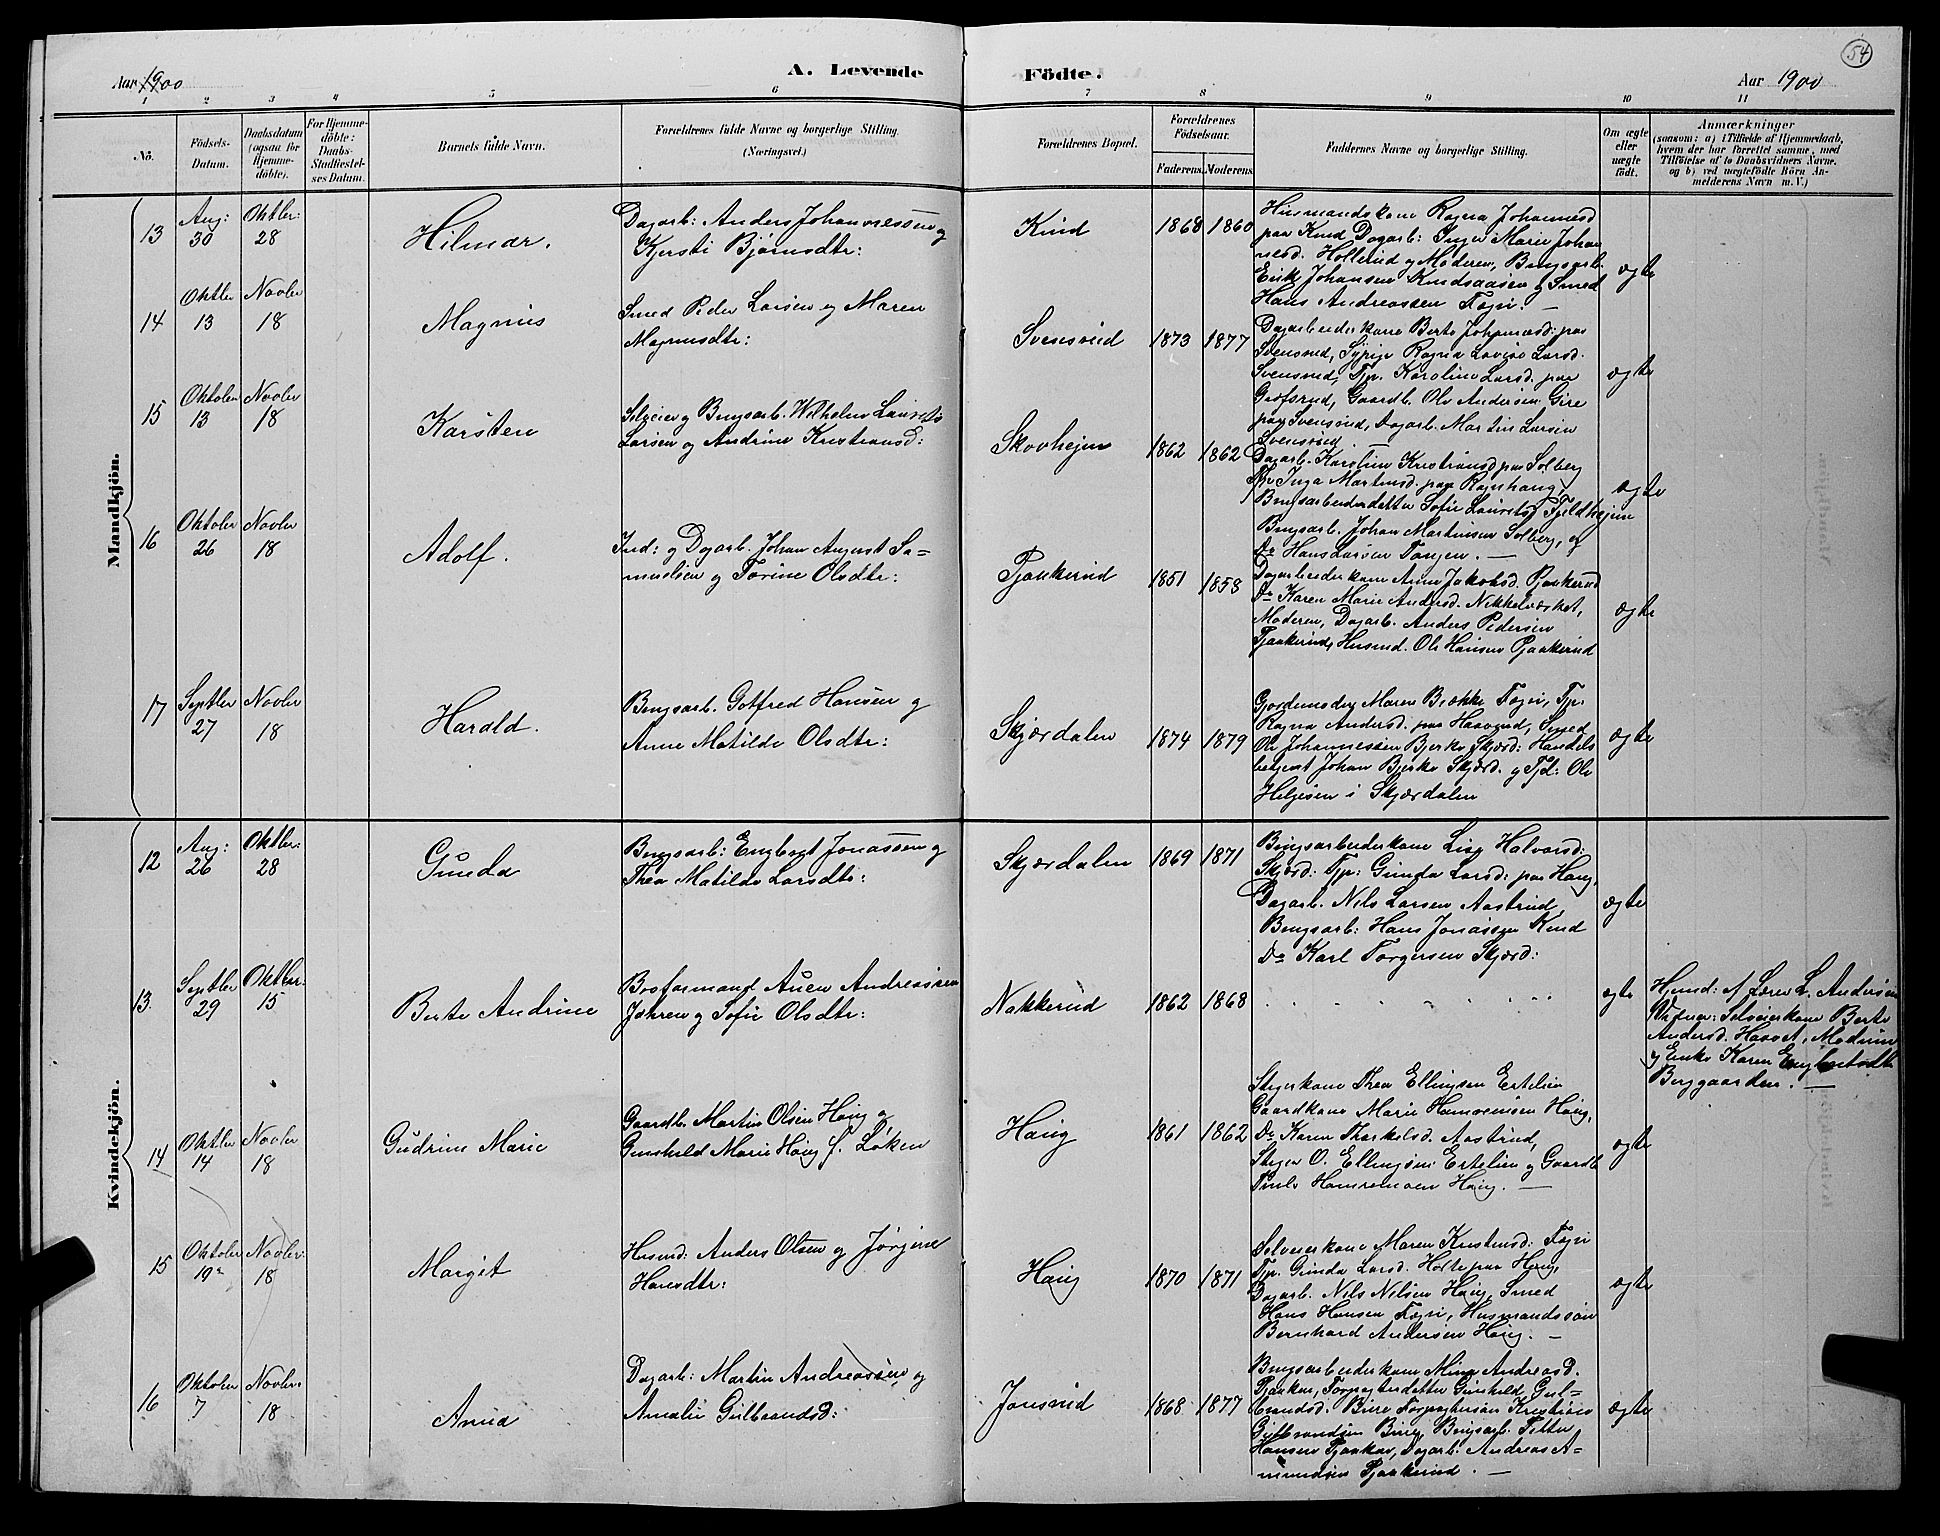 Aar 1900
A. Levende
Födte.
54
Aar 1900
1 2 3 4 5 6 7 8 9 10 11
Nö.
Födsels-
Datum.
Daabsdatum
(ogsaa for
Hjemme-
döbte).
For Hjemme-
döbte:
Daabs-
Stadfæstel-
ses Datum.
Barnets fulde Navn.
Forældrenes fulde Navne og borgerlige Stilling.
(Næringsvei.)
Forældrenes Bopæl.
Forældrenes
Födselsaar.
Faderens. Moderens.
Faddernes Navne og borgerlige Stilling.
Om ægte
eller
uægte
födt.
Anmærkninger
(saasom: a) i Tilfælde af Hjemmedaab,
hvem der har forrettet samme, med
Tilföielse af to Daabsvidners Navne.
og b) ved uægtefödte Börn An-
melderens Navn m. V.)
Mandkjön.
13
Aug:
30
Oktbr:
28
Hilmar.
Dagarb: Anders Johannessen og
Kjersti Bjørnsdtr:
Knud
1868 1860
Husmandskone Ragna Johannesd
paa Knud Dagarb: Inger Marie Johan
nesd. Hollerud og Moderen, Brugsarb.
Erik Johansen Knudsaasen og Smed
Hans Andreassen Fagri. —
ægte
14
Oktbr
13
Novbr
18
Magnus
Smed Peder Larsen og Maren
Magnusdtr:
Svensrud
1873 1877
Dagarbeiderkone Berte Johannesd: paa
Svensrud, Typige Ragna Lovise Larsd.
Svensrud, Tp. Karoline Larsd. paa
Grøfsrud, Gaardb. Ole Andersen Gire
paa Svensrud, Dagarb. Martin Larsen
Svensrud
ægte
15
Oktober
13
Novbr
18
Karsten
Selveier og Brugsarb. Wilhelm Laurits
Larsen og Andrine Kristiansd:
Skovhejm
1862 1862
Dagarb. Karoline Kristiansd paa Solberg
Inga Martinsd. paa Ragnhaug,
Brugsarbeiderdatter Sofie Lauritsd Fjeldhejm
Brugsarb. Johan Martinsen Solberg, og
Do Hans Larsen Tangen. —
ægte
16
Oktober
26
Novbr
18
Adolf.
Ind: og Dagarb. Johan August Sa=
muelsen og Torine Olsdtr:
Pjaakerud
1851 1858
Dagarbeiderkone Anne Jakobsd. Pjaakerud
Do Karen Marie Andersd. Nikkelværket,
Moderen, Dagarb. Anders Pedersen
Pjaakerud, Husmd. Ole Hansen Pjaakerud
ægte
17
Septbr
27
Novbr
18
Harald.
Brugsarb. Gotfred Hansen og
Anne Matilde Olsdtr:
Skjærdalen
1874 1879
Gjordemoder Maren Brække Fagri, Tp.
Ragna Andersd. paa Haavrud, Smed
Ole Johannessen Bjerke Skjærd: Handels
betjent Johan Bjerke Skjærd. og Tjd: Ole
Helgesen i Skjærdalen
ægte
Kvindekjön.
12
Aug:
26
Oktbr:
28
Gunda
Brugsarb: Engbregt Jonassen og
Thea Matilde Larsdtr:
Skjærdalen
1869 1871
Brugsarbeiderkone Lise Halvorsd:
Skjærd: Tp: Gunda Larsd: paa Haug,
Dagarb. Nils Larsen Aastrud,
Brugsarb: Hans Jonassen Knud
Do Karl Torgersen Skjærd:
ægte
13.
Septbr
29
Oktbr:
15
Berte Andrine
Basformand Auen Andreassen
Jahren og Sofie Olsdtr:
Nakkerud
1862 1868
ægte
Hjemd: af Lærer L. Andersen
Vidner: Selveierkone Berte
Andersd. Haavet, Moderen
og Enke Karen Engbretsdtr
Berggaarden. —
14
Oktbr
14
Novbr
18
Gudrun Marie
Gaardb. Martin Olsen Haug og
Gunhild Marie Haug f. Løken
Haug
1861 1862
Stigerkone Thea Ellingsen Ertelien
Gaardkone Marie Hansemoen Haug,
Do Karen Thorkelsd. Aastrud,
Stiger O. Ellingsen Ertelien og Gaardb.
Truls Hansemoen Haug. —
ægte
15
Oktober
19
Novbr:
18
Margit
Husmd: Anders Olsen og Jørgine
Hansdtr:
Haug
1870 1871
Selveierkone Maren Kristensd: Fagri
Tp. Gunda Larsd. Holte paa Haug,
Dagarb. Nils Nilsen Haug, Smed
Hans Hansen Fagri, Husmandssøn
Bernhard Andersen Haug. —
ægte
16
Oktober
7
Novbr:
18
Anna
Dagarb: Martin Andreassen og
Amalie Gulbrandsd:
Jonsrud
1868 1877
Brugsarbeiderkone Mina Andreasd.
Pjaaka, Forpagterdatter Gunhild Gul=
brandsd. Bure Forpagtersøn Kristian
Gulbrandsen Bure, Brugsarb. Petter
Hansen Pjaaka, Dagarb. Andreas A=
mundsen Pjaakerud. —
ægte